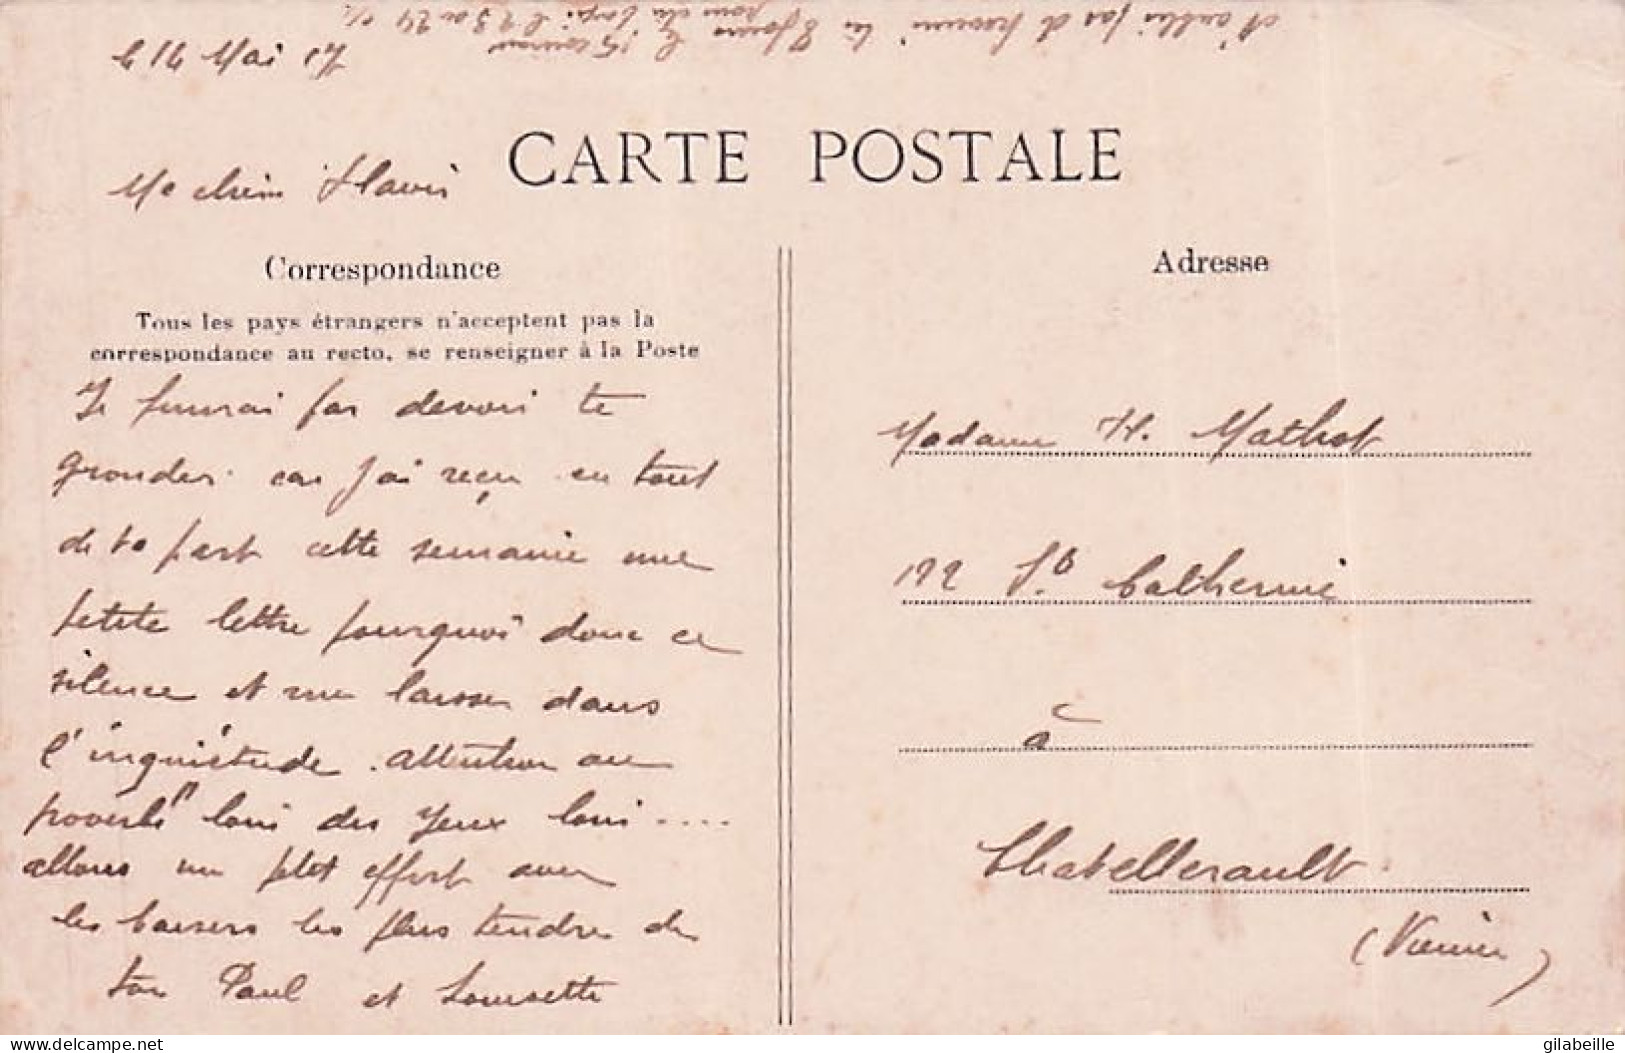 N'oublie pas de
le 15 courant
23 au 24
14 Mai 17
CARTE POSTALE
Correspondance
Adresse
Tous les pays étrangers n'acceptent pas la
correspondance au recto, se renseigner à la Poste
Je pourrai par devoir te
gronder car j'ai reçu en tout
de ta part cette semaine une
petite lettre pourquoi donc ce
silence et me laisser dans
l'inquiétude. attention au
proverbe "loin des yeux loin ....
allons un ptet effort avec
les baisers les plus tendres de
ton Paul et Lousette
Madame H. Mathot
122 St Catherine
à
Chatellerault
(Vienne)
delcampe.net
gilabeille